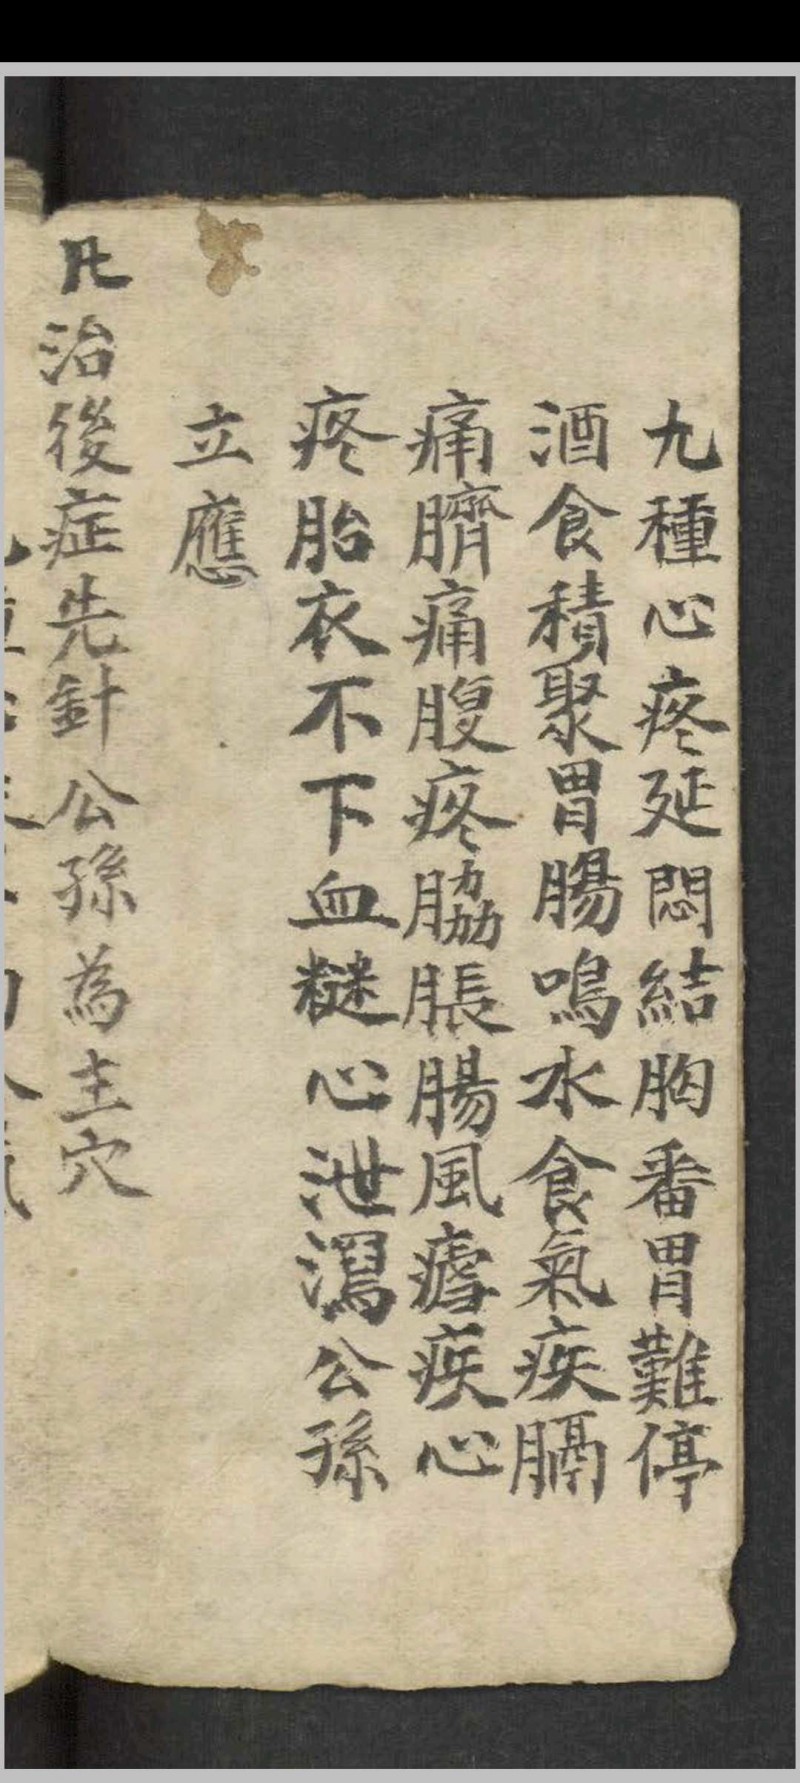 九種心疼延悶結胸番胃難停
酒食積聚胃腸鳴水食氣疾膈
痛臍痛腹疼脇脹腸風瘧疾心
疼胎衣不下血糢心泄瀉公孫
立應
凡治後症先針公孫為主穴